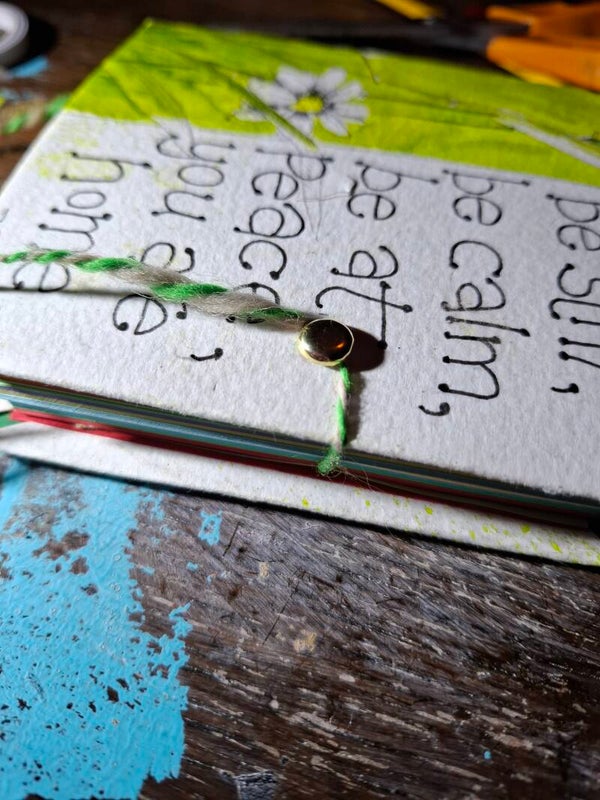 be still,
be calm,
be at
peace,
you are
home